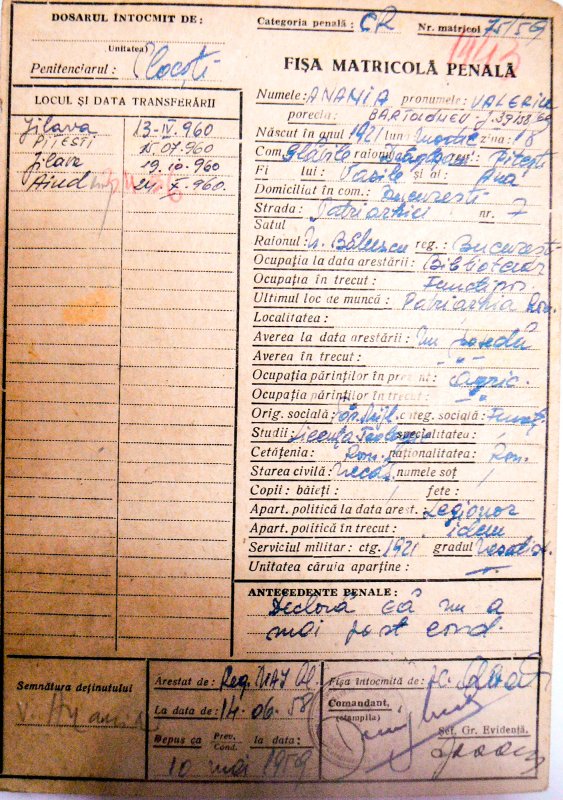 DOSARUL ÎNTOCMIT DE:
(Unitatea)
Penitenciarul:
LOCUL ȘI DATA TRANSFERĂRII
Jilava 13-IV.960
PITESTI 15.07.960
Jilava 19.10.960
Aiud 24.X.960.
Categoria penală: CR Nr. matricol 75/59
FIȘA MATRICOLĂ PENALĂ
Numele: ANANIA pronumele: VALERIU
porecla: BARTOLOMEU
Născut în anul 1921 luna Martie ziua: 18
Com. Glăvile raionul reg.: Pitești
Fi lui: Vasile și al: Ana
Domiciliat în com.: București
Strada: Patriarhiei nr. 7
Satul
Raionul N. Bălcescu reg.: București
Ocupația la data arestării: Bibliotecar
Ocupația în trecut: Funcționar
Ultimul loc de muncă: Patriarhia Rom.
Localitatea:
Averea la data arestării: Nu posedă
Averea în trecut: " "
Ocupația părinților în prezent: Agric.
Ocupația părinților în trecut: "
Orig. socială: categ. socială: Funcț.
Studii Licența Teologie specialitatea: /
Cetățenia Rom. naționalitatea: Rom.
Starea civilă: Necăs. numele soț /
Copii: băieți: / fete: /
Apart. politică la data arest. Legionar
Apart. politică în trecut: idem
Serviciul militar: ctg. 1921 gradul
Unitatea căruia aparține:
ANTECEDENTE PENALE:
Declară că nu a
mai fost cond.
Semnătura deținutului
V. Anania
Arestat de: Reg. MAI
La data de: 14-06-58
Depus ca Prev. Cond. la data:
10 mai 1959
Fișa întocmită de:
Comandant,
(ștampila)
Șef. Gr. Evidență,